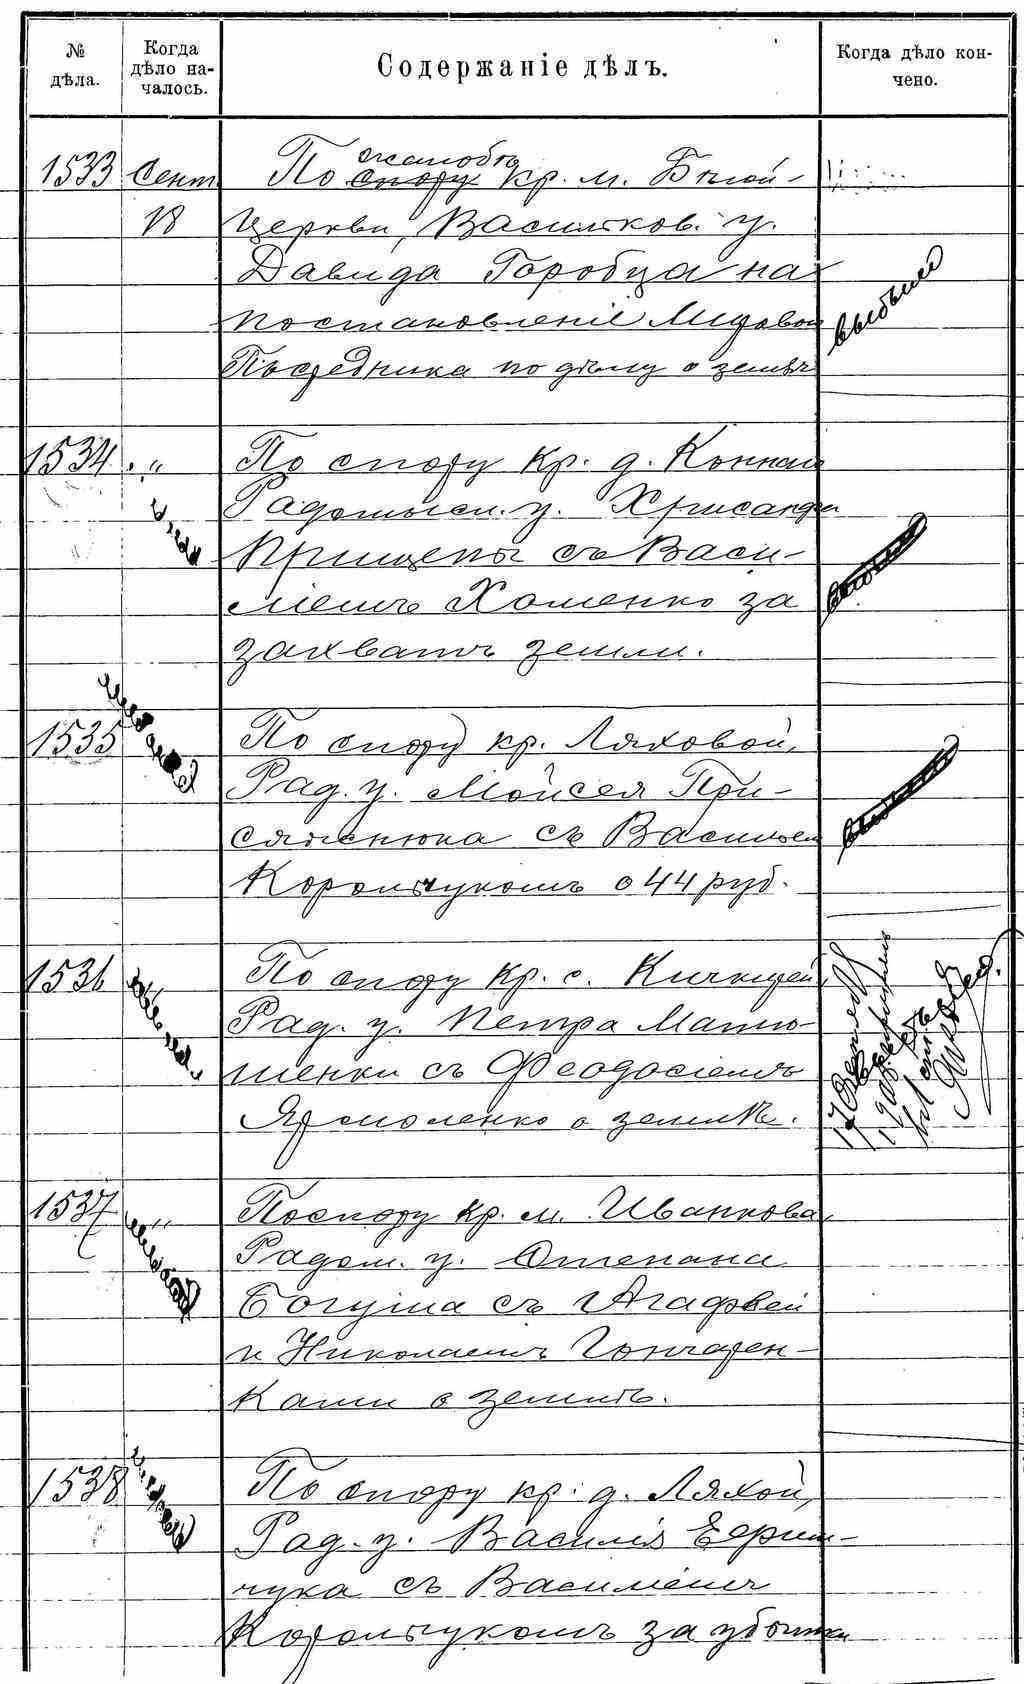 № дѣла.
Когда дѣло на-
чалось.
Содержаніе дѣлъ.
Когда дѣло кон-
чено.
1533 Сент. 18
жалобѣ
По спору кр. м. Бѣлой-
Церкви, Васильков. у.
Давида Горобца на
постановленіе Мирового
Посредника по дѣлу о землѣ
выбыло
1534 "
По спору кр. д.
Радомысл. у. Хрисанфа
Прищепы съ Васи-
ліемъ Хоменко за
захватъ земли.
1535
По спору кр. Ляховой,
Рад. у. Мойсея При-
сяжнюка съ Васильем
Корольчукомъ о 44 руб.
1536 "
По спору кр. с. Кичкирей,
Рад. у. Петра Матю-
шенки съ Феодосіемъ
Ярмоленко о землѣ.
1537 "
По спору кр. м. Иванкова,
Радом. у. Степана
Богуша съ Агафьей
и Николаемъ Гончарен-
ками о землѣ.
1538
По спору кр. д. Ляхой,
Рад. у. Василія Ефим-
чука съ Василіемъ
Корольчукомъ за убытки